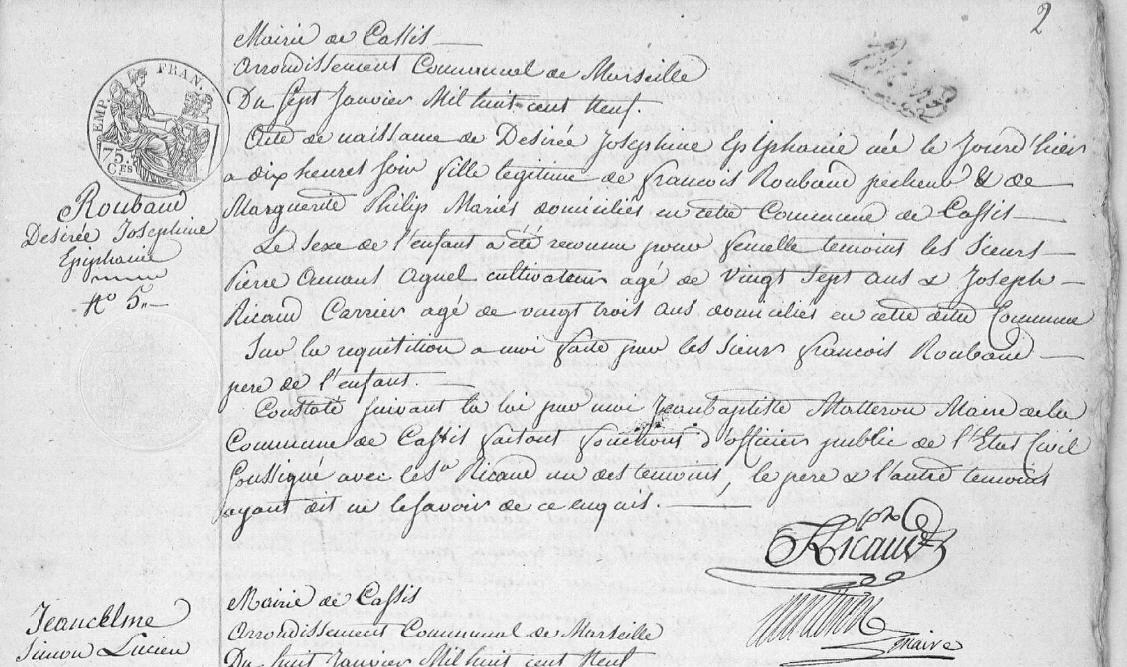 2
Mairie de Cassis
Arrondissement Communal de Marseille
Du Sept Janvier Mil huit cent neuf.
EMP. FRAN.
75.
CES
Acte de naissance de Desirée Josephine Epiphanie née le Jourd'hier
a dix heures soir fille legitime de francois Roubaud pecheur & de
Marguerite Philip Mariés domiciliés en cette Commune de Cassis
Roubaud
Desirée Josephine
Epiphanie
No 5.
Le Sexe de l'enfant a été reconnu pour femelle temoins les Sieurs
Pierre Amant Aguel cultivateur agé de vingt Sept ans & Joseph
Ricaud Carrier agé de vingt trois ans domiciliés en cette ditte Commune
Sur la requisition a moi faite par les Sieur francois Roubaud
pere de l'enfant.
Constaté suivant la loi par moi Jeanbaptiste Matteron Maire de la
Commune de Cassis faisant fonctions d'officier public de l'Etat Civil
Soussigné avec les Sr Ricaud un des temoins, le pere & l'autre temoins
ayant dit ne le savoir de ce enquis.
Ricaud
maire
Jeancelme
Simon Lucien
Mairie de Cassis
Arrondissement Communal de Marseille
Du huit Janvier Mil huit cent neuf